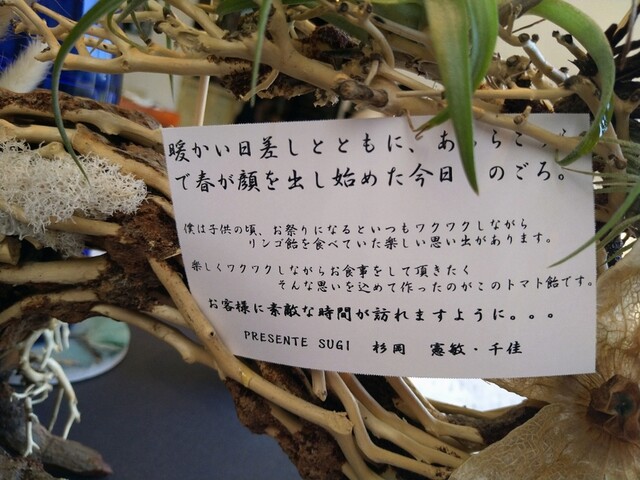 暖かい日差しとともに、あ
で春が顔を出し始めた今日 のごろ。
僕は子供の頃、お祭りになるといつもワクワクしながら
リンゴ飴を食べていた楽しい思い出があります。
楽しくワクワクしながらお食事をして頂きたく
そんな思いを込めて作ったのがこのトマト飴です。
お客様に素敵な時間が訪れますように。。。
PRESENTE SUGI 杉岡 憲敏・千佳